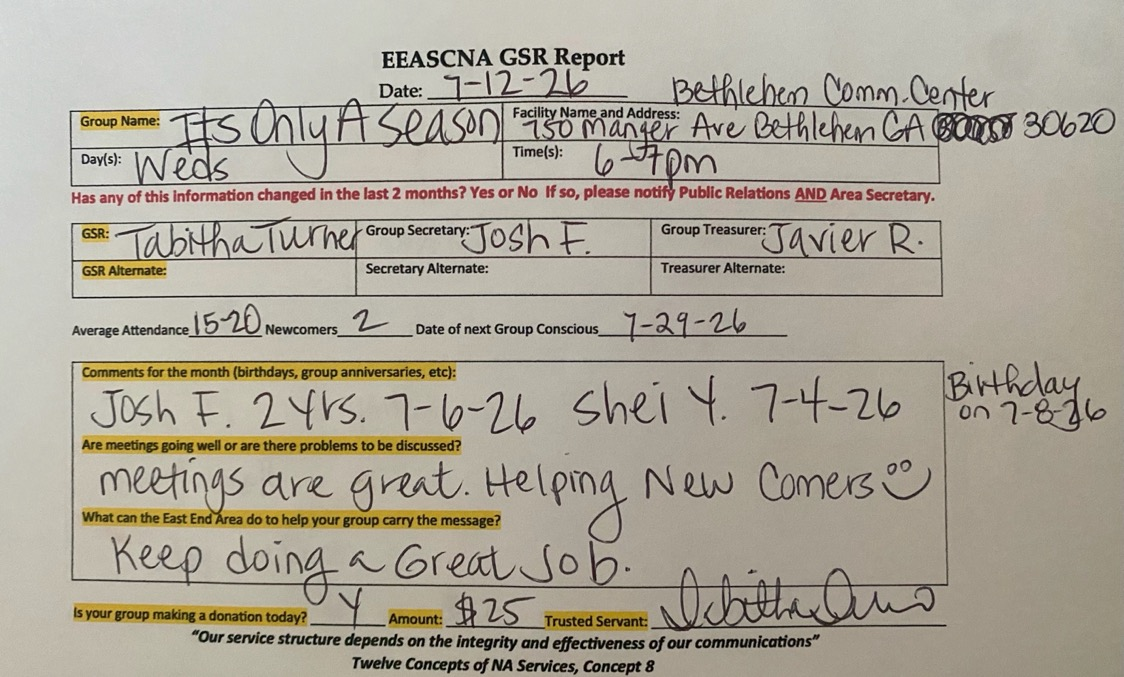 EEASCNA GSR Report
Date: 7-12-26
Bethlehem Comm. Center
Group Name: Its Only A Season Facility Name and Address: 750 Manger Ave Bethlehem GA 30620
Day(s): Weds Time(s): 6-7pm
Has any of this information changed in the last 2 months? Yes or No If so, please notify Public Relations AND Area Secretary.
GSR: Tabitha Turner Group Secretary: Josh F. Group Treasurer: Javier R.
GSR Alternate: Secretary Alternate: Treasurer Alternate:
Average Attendance 15-20 Newcomers 2 Date of next Group Conscious 7-29-26
Comments for the month (birthdays, group anniversaries, etc):
Josh F. 2 yrs. 7-6-26 Shei Y. 7-4-26
Birthday
on 7-8-26
Are meetings going well or are there problems to be discussed?
meetings are great. Helping New Comers
What can the East End Area do to help your group carry the message?
Keep doing a Great Job.
Is your group making a donation today? Y Amount: $25 Trusted Servant:
"Our service structure depends on the integrity and effectiveness of our communications"
Twelve Concepts of NA Services, Concept 8